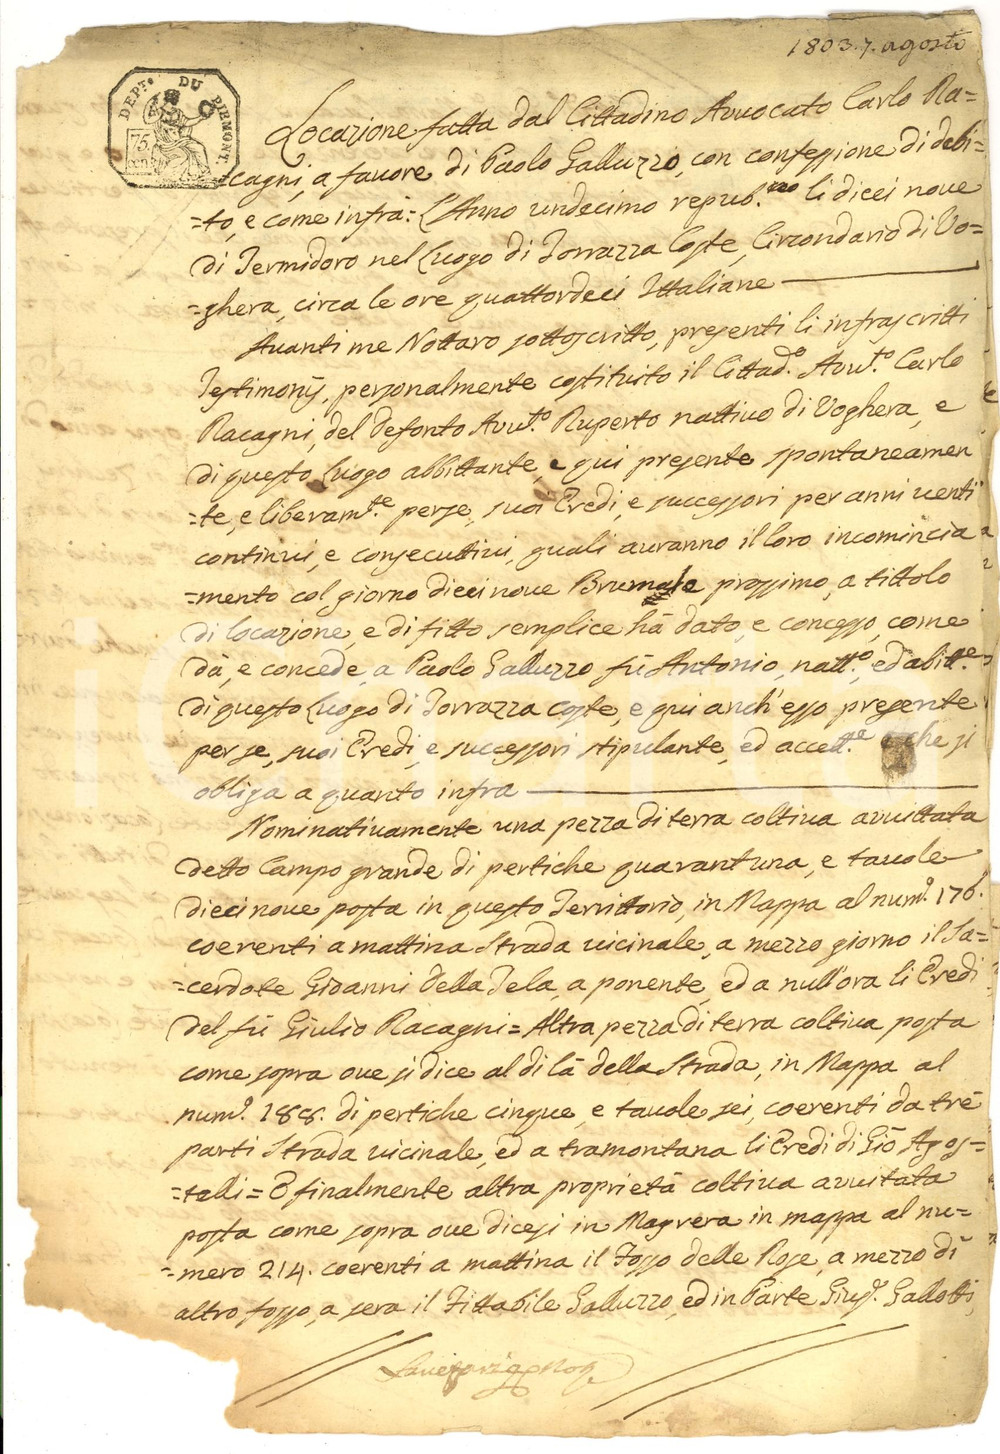 1803. 7. agosto
DEPT.e DU PIEMONT.
75.
Locazione fatta dal Cittadino Avvocato Carlo Ra=
cagni, a favore di Paolo Galluzzo, con confessione di debi=
=to, e come infrà: L'Anno undecimo repub.no li dieci nove
di Termidoro nel Luogo di Torrazza Coste, Circondario di Vo=
=ghera, circa le ore quattordeci Ittaliane
Avanti me Nottaro sottoscritto, presenti li infrascritti
Testimonÿ, personalmente costituito il Cittad.o Avv.to Carlo
Racagni, del defonto Avv.to Ruperto nattivo di Voghera, e
di questo Luogo abbittante, e qui presente spontaneamen
=te, e liberam.te per se, suoi Eredi, e successori per anni venti
continui, e consecuttivi, quali avranno il loro incomincia
=mento col giorno dieci nove Brumale prossimo, a tittolo
di locazione, e di fitto semplice hà dato, e concesso, come
dà, e concede, a Paolo Galluzzo fù Antonio, natt.o, ed abitt.e
di questo Luogo di Torrazza Coste, e qui anch'esso presente
per se, suoi Eredi, e successori stipulante, ed accett.e e che si
obliga a quanto infra
Nominativamente una pezza di terra coltiva avvittata
detto Campo grande di pertiche quarant'una, e tavole
dieci nove posta in questo Territtorio, in Mappa al num.o 176.
coerenti a mattina Strada vicinale, a mezzo giorno il Sa=
=cerdote Gioanni Della Tela, a ponente, ed a null'ora li Eredi
del fù Giulio Racagni = Altra pezza di terra coltiva posta
come sopra ove si dice al di là della Strada, in Mappa al
num.o 188. di pertiche cinque, e tavole sei, coerenti da tre
parti Strada vicinale, ed a tramontana li Eredi di Giò Agos=
=talli = E finalmente altra proprietà coltiva avvitata
posta come sopra ove dicesi in Magrera in mappa al nu=
=mero 214. coerenti a mattina il Fosso delle Rose, a mezzo dì
altro fosso, a sera il Fittabile Galluzzo, ed in Parte Gius.e Gallotti,